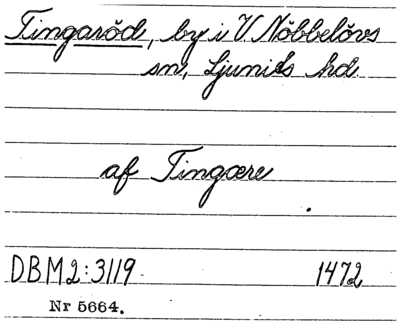 Tingaröd, by i V Nöbbelövs
sn, Ljunids hd.
af Tingære
DBM2:3119. 1472
Nr 5664.